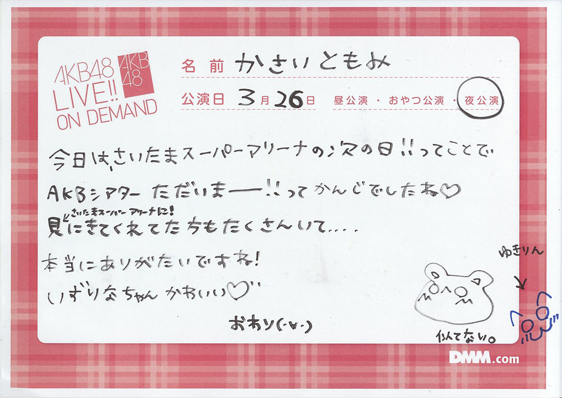 AKB48
LIVE!!
ON DEMAND
AKB
48
名前 かさいともみ
公演日 3月26日 昼公演・おやつ公演・夜公演
今日は、さいたまスーパーアリーナの次の日!!ってことで
AKBシアター ただいまーー!!って かんじでしたね♡
さいたまスーパーアリーナに!
見にきてくれてた方もたくさんいて....
本当にありがたいですね!
いずりなちゃん かわいい♡
おわり(・v・)
ゆきりん
似てない。
DMM.com